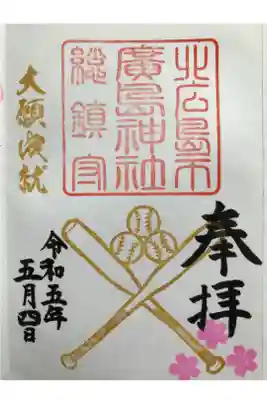 奉拝
北広島市
廣島神社
総鎮守
大願成就
令和五年
五月四日